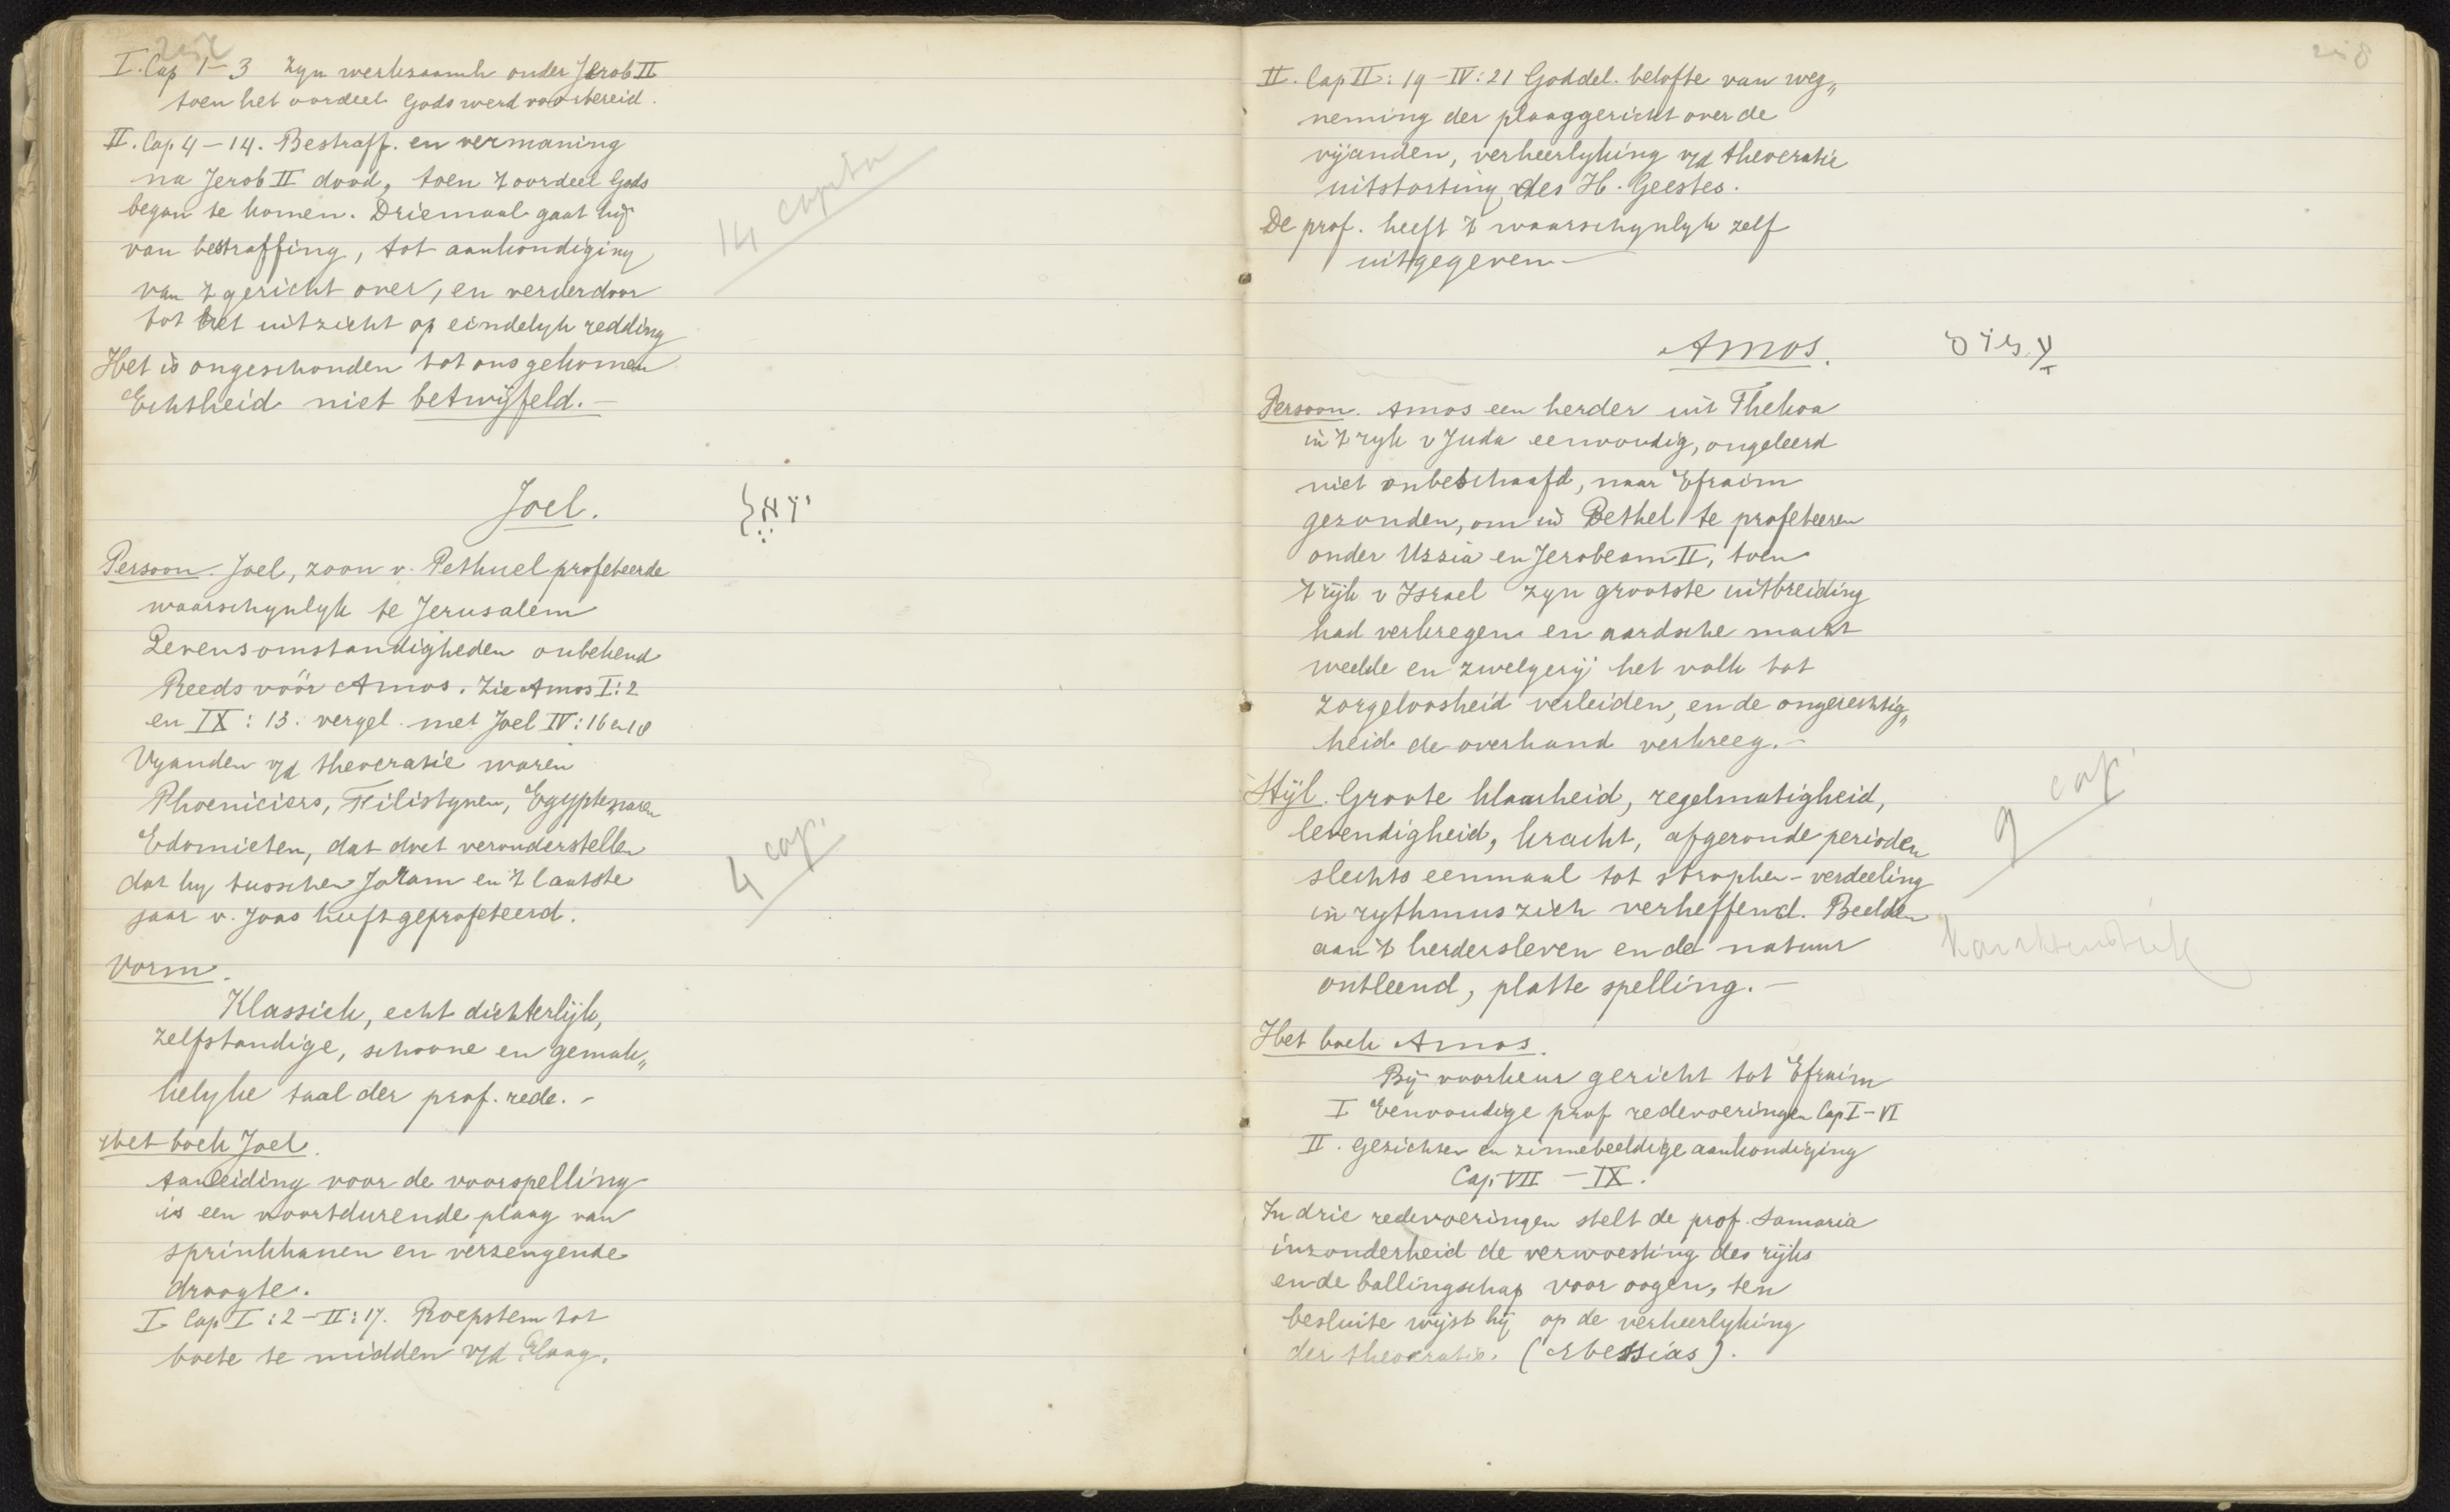 I. Cap 1-3 Zyn werkzaamh onder Jerob II
toen het oordeel Gods werd voorbereid.
II. Cap 4-14. Bestraff. en vermaning
na Jerob II dood, toen 't oordeel Gods
began te komen. Driemaal gaat hij
van bestraffing, tot aankondiging
van 't gericht over, en verder door
tot het uitzicht op eindelyk redding
Het is ongeschonden tot ons gekomen
Echtheid niet betwijfeld.-
14 capita
Joel.
יואל
Persoon. Joel, zoon v. Pethuel profeteerde
waarschynlyk te Jerusalem
Levensomstandigheden onbekend
Reeds vóór Amos. Zie Amos I:2
en IX:13. vergel. met Joel IV:16 en 18
Vyanden v/d theocratie waren
Phoeniciers, Filistynen, Egyptenaren
Edomieten, dat doet veronderstellen
dat hy tusschen Joram en 't laatste
jaar v. Joas heeft geprofeteerd.
4 cap.
Vorm.
Klassiek, echt dichterlijk,
zelfstandige, schoone en gemak„
kelyke taal der prof. rede.-
Het boek Joel.
Aanleiding voor de voorspelling
is een voortdurende plaag van
sprinkhanen en verzengende
droogte.
I Cap I:2-II:17. Roepstem tot
boete te midden v/d Plaag.
218
II. Cap II:19-IV:21 Goddel. belofte van weg„
neming der plaaggericht over de
vijanden, verheerlyking v/d theocratie
uitstorting des H. Geestes.
De prof. heeft 't waarschynlyk zelf
uitgegeven-
Amos.
עמוס
Persoon. Amos een herder uit Thekoa
in 't ryk v Juda eenvoudig, ongeleerd
niet onbeschaafd, naar Efraim
gezonden, om in Bethel te profeteeren
onder Uzzia en Jerobeam II, toen
't rijk v Israel zyn grootste uitbreiding
had verkregen en aardsche macht
weelde en zwelgerij het volk tot
zorgeloosheid verleiden, en de ongerechtig„
heid de overhand verkreeg.-
Stijl. Groote klaarheid, regelmatigheid,
levendigheid, kracht, afgeronde perioden
slechts eenmaal tot strophen-verdeeling
in rythmus zich verheffend. Beelden
aan 't herdersleven en de natuur
ontleend, platte spelling.-
9 cap.
Het boek Amos.
Bij voorkeur gericht tot Efraim
I Eenvoudige prof redevoeringen Cap I-VI
II. Gezichten en zinnebeeldige aankondiging
Cap. VII-IX.
In drie redevoeringen stelt de prof. Samaria
inzonderheid de verwoesting des rijks
en de ballingschap voor oogen, ten
besluite wijst hij op de verheerlyking
der theocratie. (Messias).